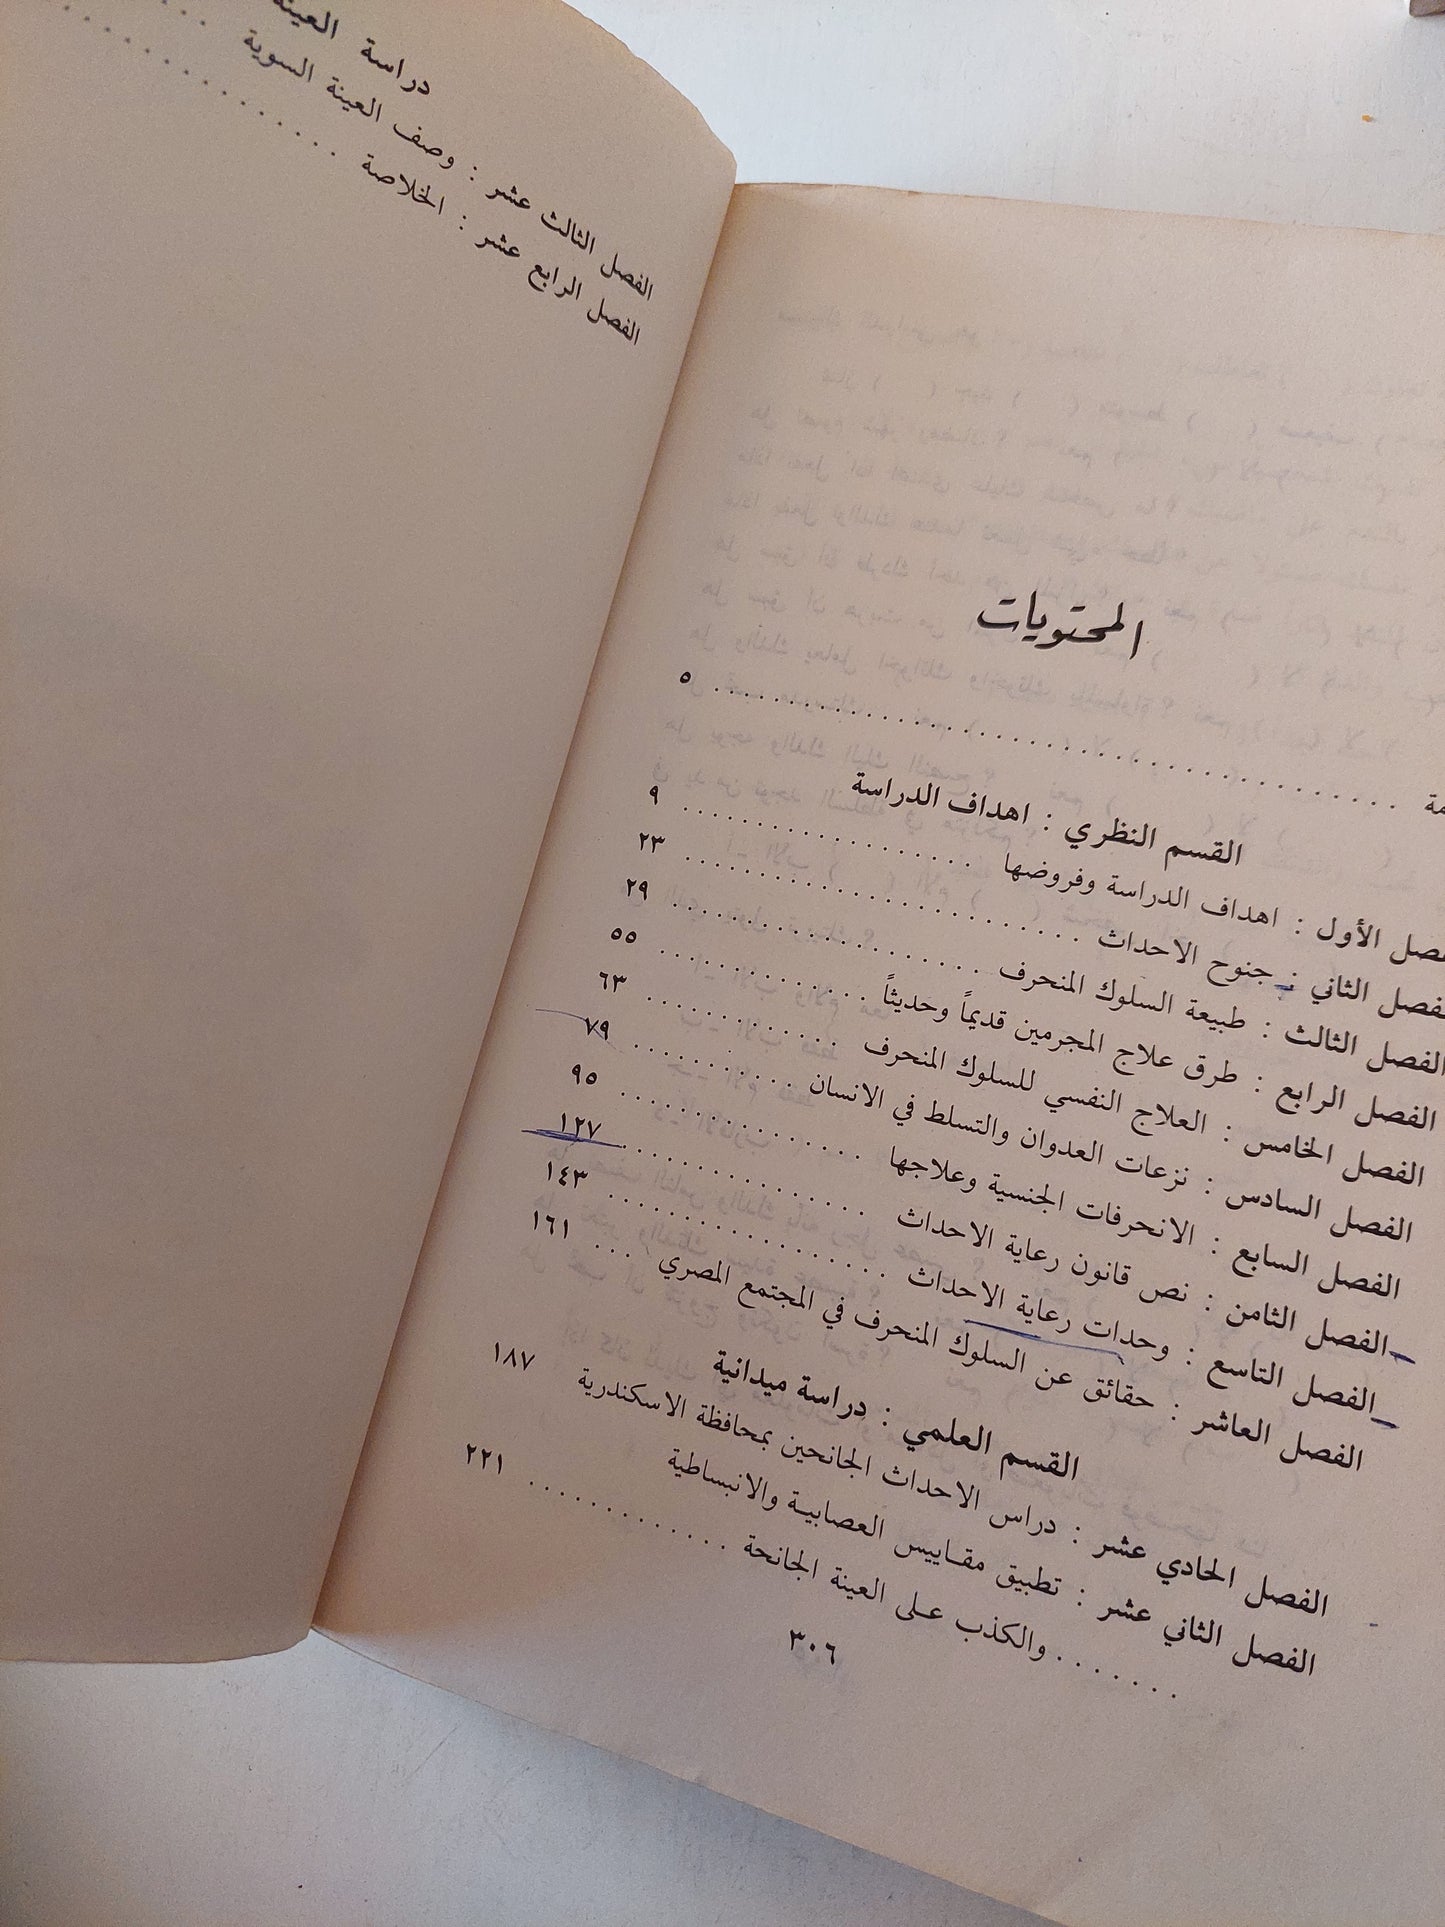 المحتويات
. . . . . . . . . . . . . . . . . . . . . . . . ٥
القسم النظري : اهداف الدراسة
الأول : اهداف الدراسة وفروضها . . . . . . . . . . . . . . . ٩
الثاني : جنوح الاحداث . . . . . . . . . . . . . . . . . . . . ٢٣
الفصل الثالث : طبيعة السلوك المنحرف . . . . . . . . . . . . . . . . ٢٩
الفصل الرابع : طرق علاج المجرمين قديماً وحديثاً . . . . . . . . . . . ٥٥
الفصل الخامس : العلاج النفسي للسلوك المنحرف . . . . . . . . . . ٦٣
الفصل السادس : نزعات العدوان والتسلط في الانسان . . . . . . . . . ٧٩
الفصل السابع : الانحرفات الجنسية وعلاجها . . . . . . . . . . . . . ٩٥
الفصل الثامن : نص قانون رعاية الاحداث . . . . . . . . . . . . . ١٢٧
الفصل التاسع : وحدات رعاية الاحداث . . . . . . . . . . . . . . ١٤٣
الفصل العاشر : حقائق عن السلوك المنحرف في المجتمع المصري . . . . ١٦١
القسم العلمي : دراسة ميدانية
الفصل الحادي عشر : دراس الاحداث الجانحين بمحافظة الاسكندرية ١٨٧
الفصل الثاني عشر : تطبيق مقاييس العصابية والانبساطية
. . . . . . . والكذب على العينة الجانحة . . . . . . . . . . . . . ٢٢١
٣٠٦
دراسة العينة
الفصل الثالث عشر : وصف العينة السوية . . .
الفصل الرابع عشر : الخلاصة . . . . . . . . . . . .